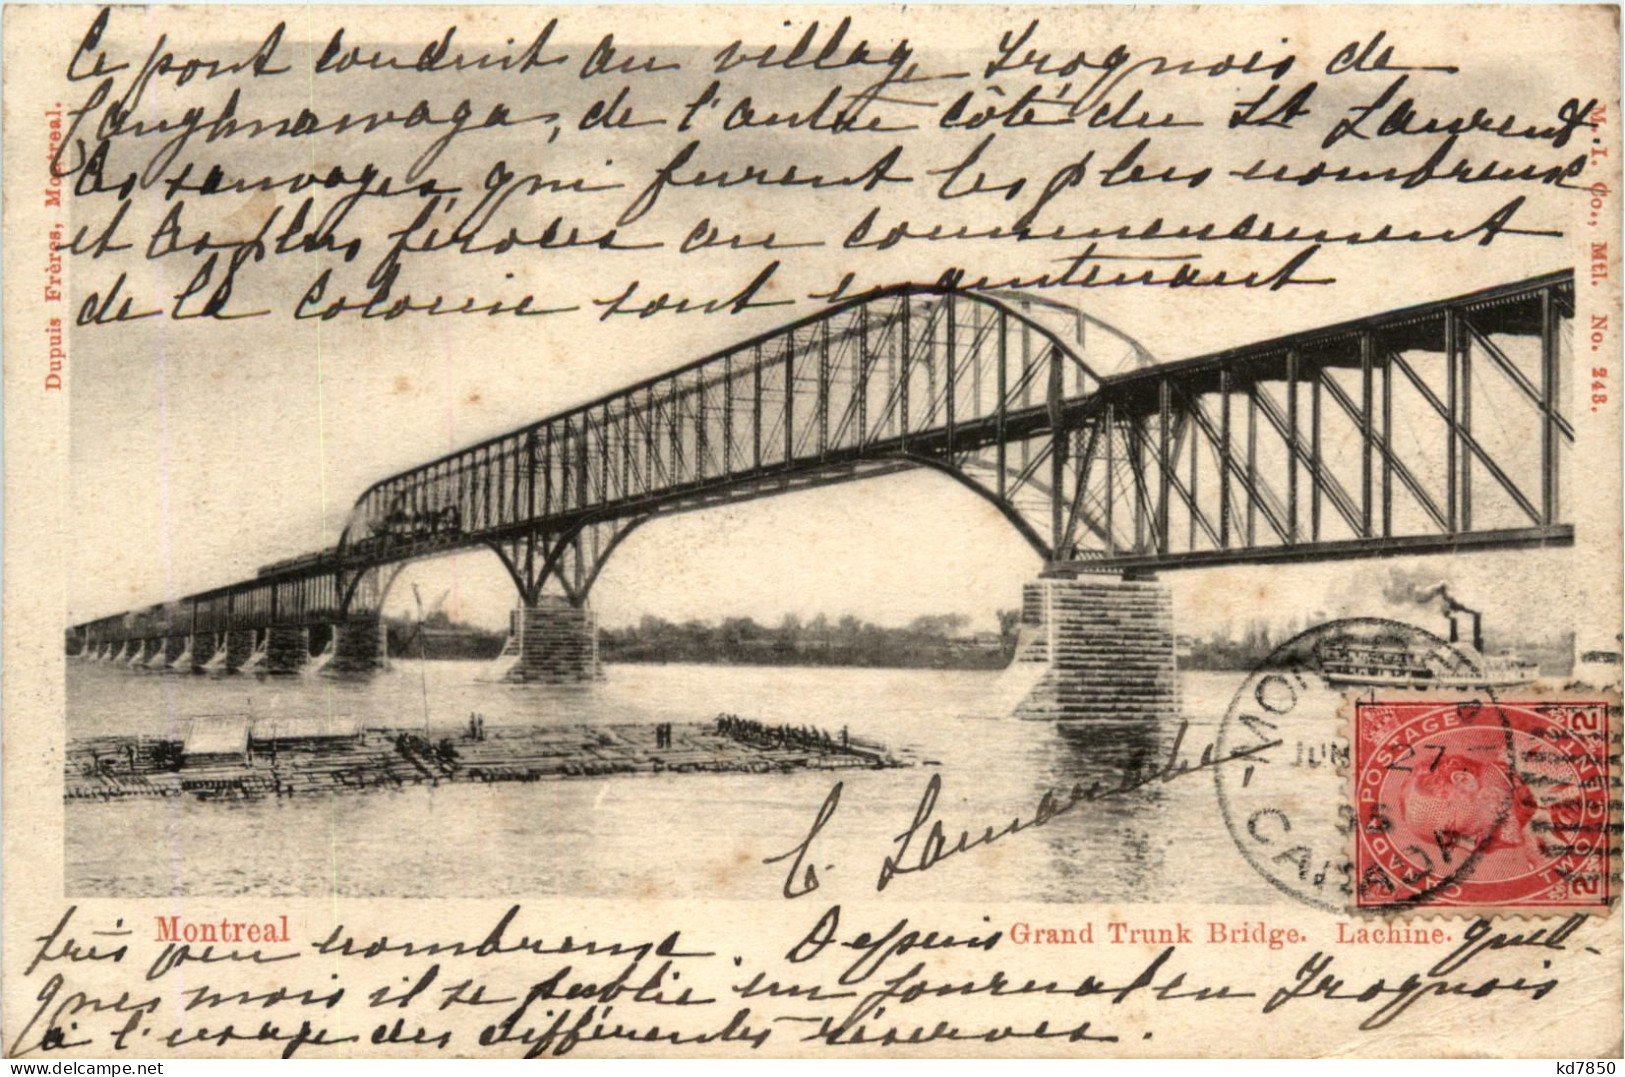 Ce pont conduit au village Irognois de
Caughnawaga, de l'autre côté du St Laurent
Les sauvages, qui furent les plus nombreux
et les plus féroces au commencement
de la colonie sont maintenant
Dupuis Frères, Montreal.
M. I. Co., Mtl. No. 248.
MONTREAL
JUN 27
CANADA
CANADA POSTAGE
TWO CENTS
2 2
Montreal
Grand Trunk Bridge. Lachine.
très peu nombreux. Depuis quel-
ques mois il se publie un journal en Irognois
à l'usage des différentes réserves.
kd7850